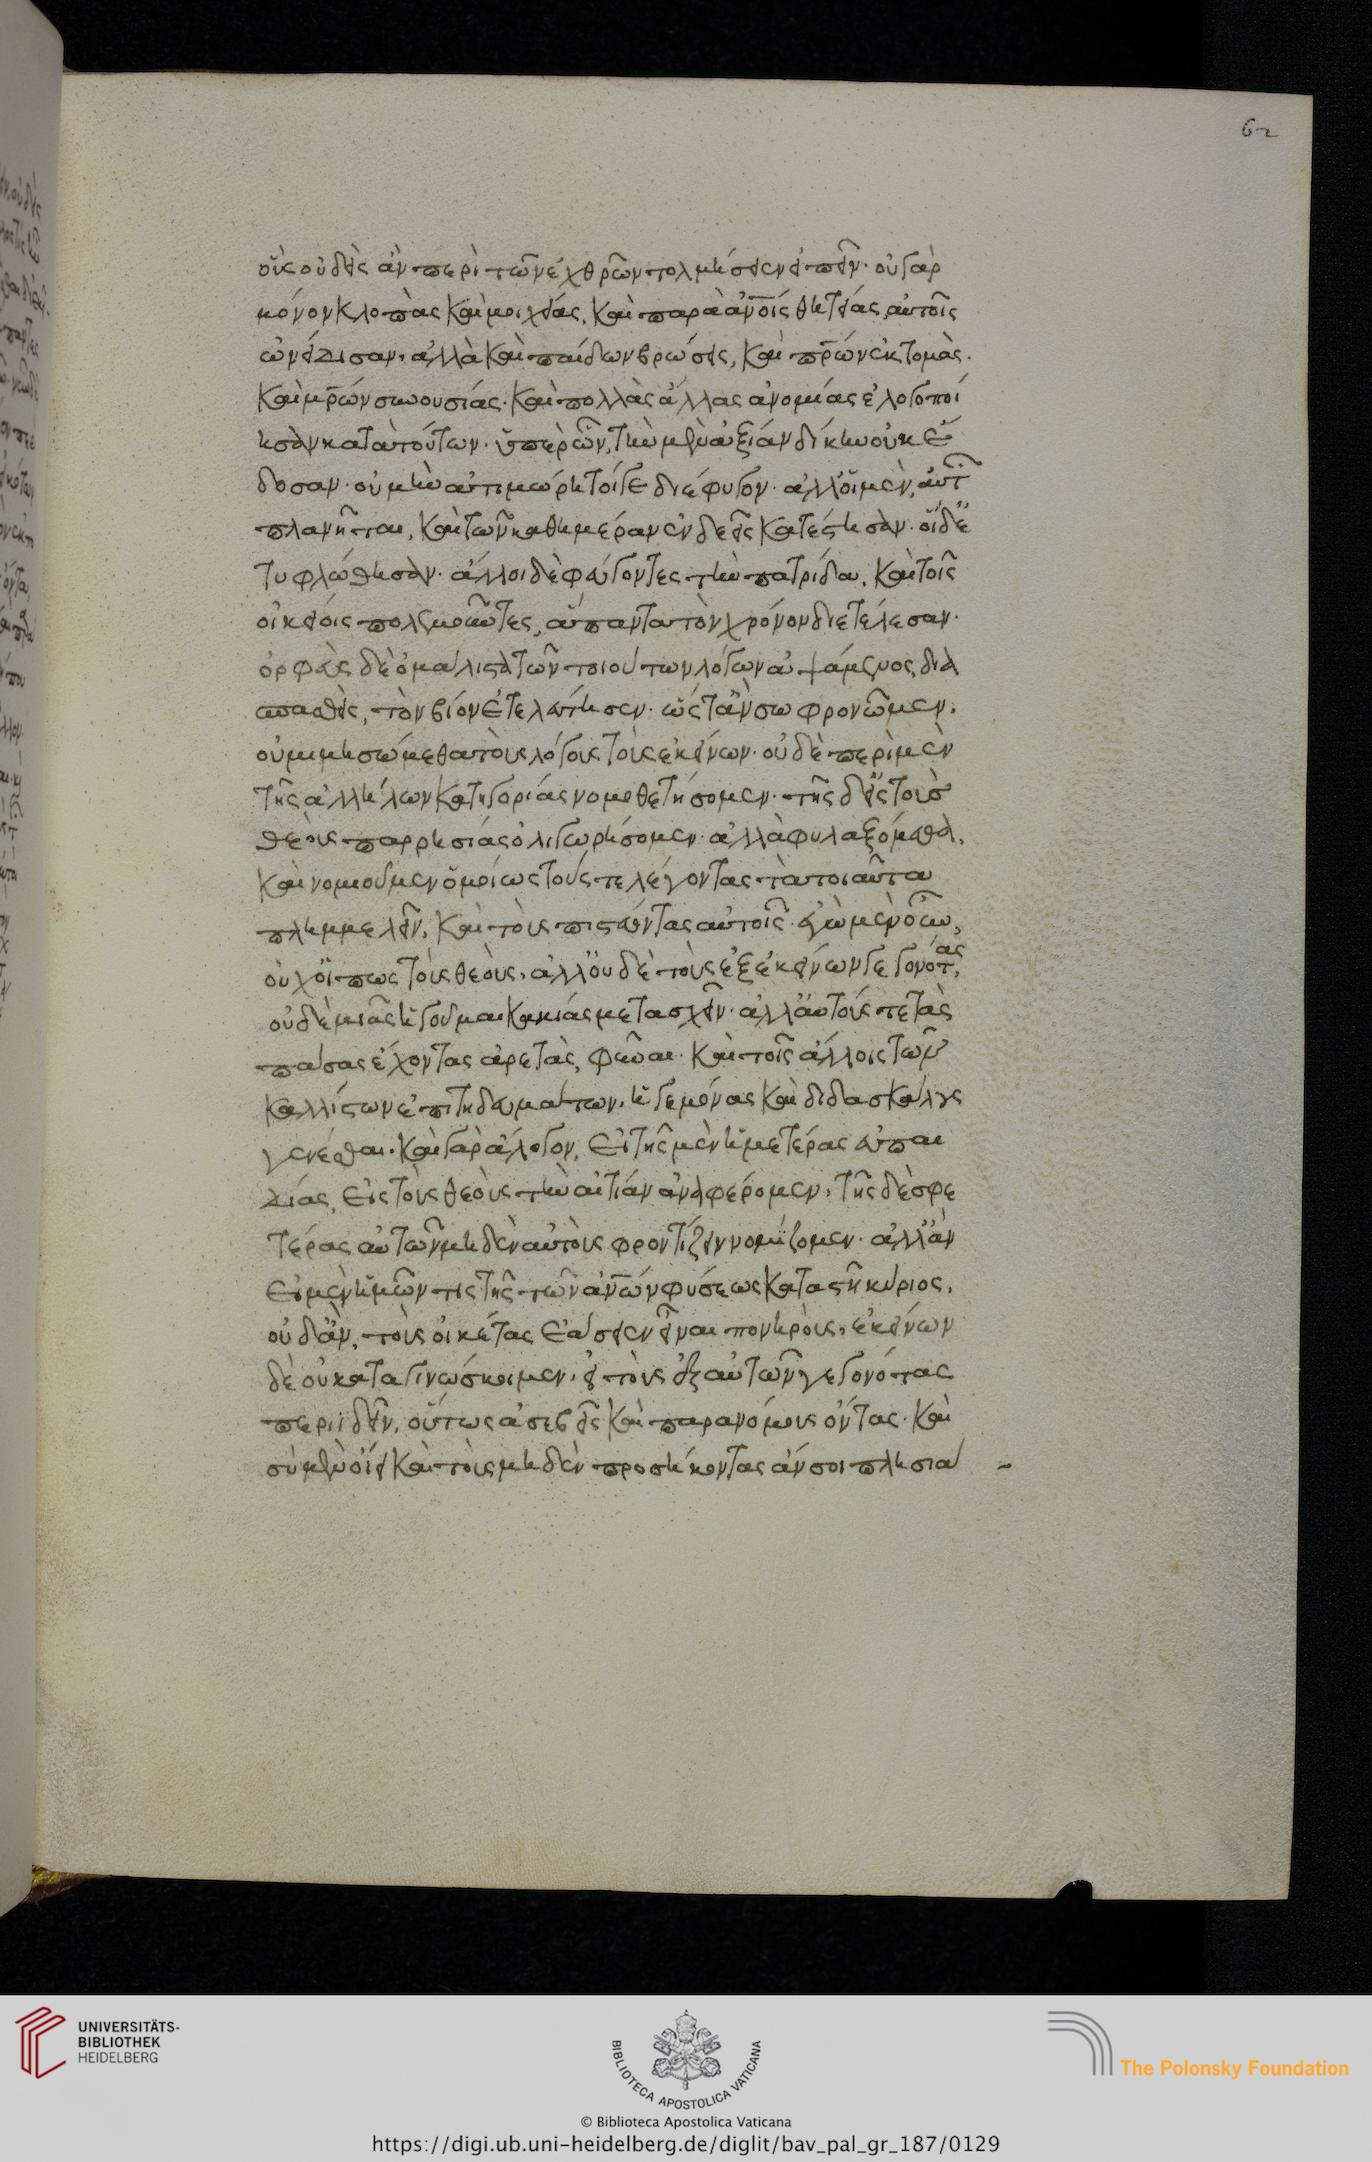 62
οἵους οὐδεὶς ἂν περὶ τῶν ἐχθρῶν τολμήσειεν εἰπεῖν· οὐ γὰρ
μόνον κλοπὰς καὶ μοιχείας, καὶ παρὰ ἀνοις θητείας αὐτοῖς
ὠνείδισαν, ἀλλὰ καὶ παίδων βρώσεις, καὶ πρων ἐκτομὰς·
καὶ μρων συνουσίας· καὶ πολλὰς ἄλλας ἀνομίας ἐλογοποί
ησαν κατ' αὐτούτων· ὑπὲρ ὧν, τὴν μὲν ἀξίαν δίκην οὐκ ἔ
δοσαν· οὐ μὴν ἀτιμώρητοί γε διέφυγον· ἀλλ' οἱ μὲν, αὐτ
πλανῆται, καὶ τῶν καθ' ἡμέραν ἐνδεεῖς κατέστησαν· οἱ δ' ἐ
τυφλώθησαν· ἄλλοι δὲ φεύγοντες τὴν πατρίδα, καὶ τοῖς
οἰκείοις πολεμοῦντες, ἅπαντα τὸν χρόνον διετέλεσαν·
ὀρφεὺς δὲ ὁ μάλιστα τῶν τοιούτων λόγων ἁψάμενος, δια
σπασθεὶς, τὸν βίον ἐτελεύτησεν· ὥστ' ἂν σωφρονῶμεν,
οὐ μιμησώμεθα τοὺς λόγους τοὺς ἐκείνων· οὐδὲ περὶ μὲν
τῆς ἀλλήλων κατηγορίας νομοθετήσομεν· τῆς δ' εἰς τοὺς
θεοὺς παρρησίας ὀλιγωρήσομεν· ἀλλὰ φυλαξόμεθα,
καὶ νομιοῦμεν ὁμοίως τούς τε λέγοντας τὰ τοιαῦτα
πλημμελεῖν, καὶ τοὺς πιστεύοντας αὐτοῖς· ἐγὼ μὲν οὖν,
οὐχ ὅπως τοὺς θεοὺς, ἀλλ' οὐδὲ τοὺς ἐξ ἐκείνων γεγονότας,
οὐδὲ μιᾶς ἡγοῦμαι κακίας μετασχεῖν· ἀλλ' αὐτούς τε τὰς
πάσας ἔχοντας ἀρετὰς, φῦναι· καὶ τοῖς ἄλλοις τῶν
καλλίστων ἐπιτηδευμάτων, ἡγεμόνας καὶ διδασκάλους
γενέσθαι· καὶ γὰρ ἄλογον, εἰ τῆς μὲν ἡμετέρας εὐπαι
δίας, εἰς τοὺς θεοὺς τὴν αἰτίαν ἀναφέρομεν, τῆς δὲ σφε
τέρας αὐτῶν μηδὲν αὐτοὺς φροντίζειν νομίζομεν· ἀλλ' ἂν
εἰ μὲν ἡμῶν τις τῆς τῶν ἀνων φύσεως καταστῆ κύριος,
οὐδ' ἂν, τοὺς οἰκέτας ἐάσειεν εἶναι πονηροὺς, ἐκείνων
δὲ οὐ καταγινώσκοιμεν, εἰ τοὺς ἐξ αὐτῶν γεγονότας
περιϊδεῖν, οὕτως ἀσεβεῖς καὶ παρανόμους ὄντας· καὶ
σὺ μὲν οἴει καὶ τοὺς μηδὲν προσήκοντας ἄν σοι πλησιά
UNIVERSITÄTS-
BIBLIOTHEK
HEIDELBERG
BIBLIOTECA APOSTOLICA VATICANA
© Biblioteca Apostolica Vaticana
The Polonsky Foundation
https://digi.ub.uni-heidelberg.de/diglit/bav_pal_gr_187/0129